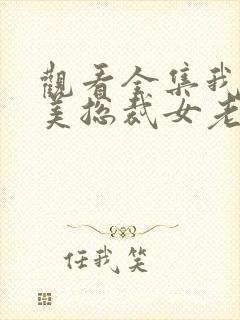 觀看全集我
美總裁女老
任我笑